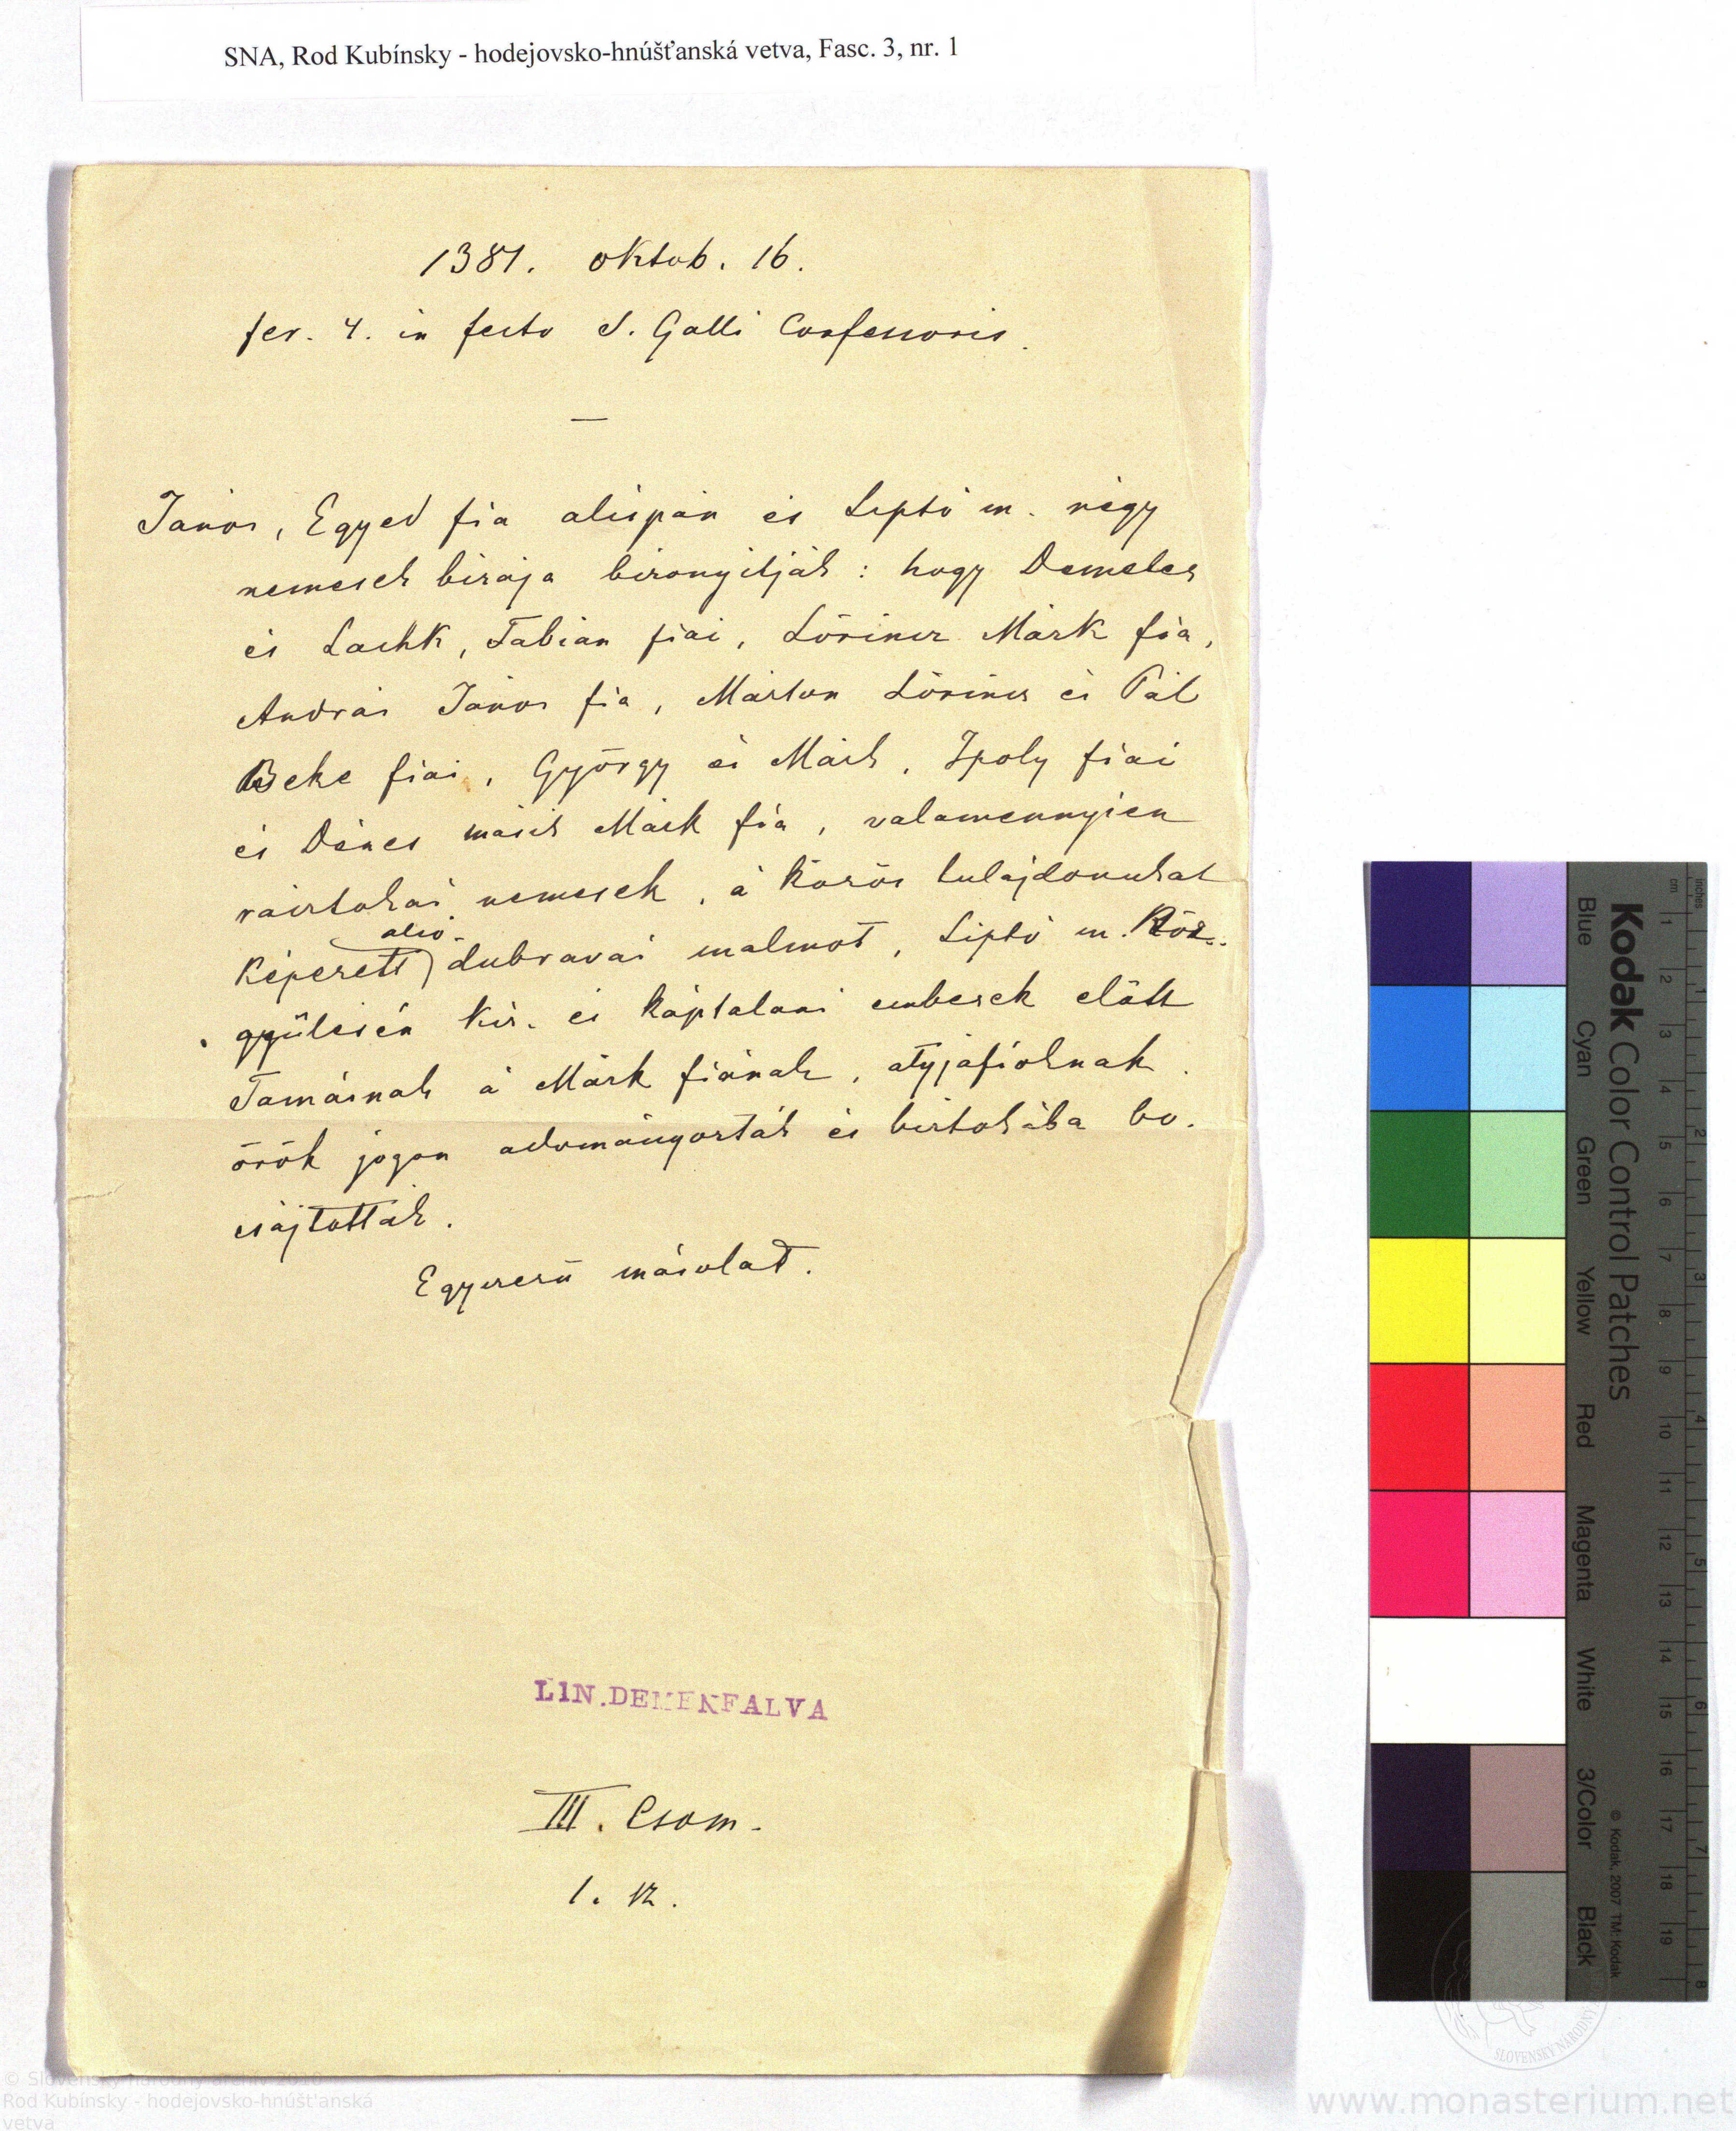 SNA, Rod Kubínsky - hodejovsko-hnúšťanská vetva, Fasc. 3, nr. 1
1381. oktob. 16.
fer. 4. in festo S. Galli Confessoris.
—
János, Egyed fia alispán és Liptó m. négy
nemesek birája bizonyitják : hogy Demeter
és Lachk, Fabian fiai, Lőrincz Márk fia,
András János fia, Márton Lőrincz és Pál
Beke fiai, György és Márk, Ipoly fiai
és Dénes másik Márk fia, valamennyien
nemesek, a közös tulajdonukat
alsó-
képezett dubravai malmot, Liptó m. Köz-
gyülésén kir. és káptalani emberek előtt
Tamásnak a Márk fiának, atyjafioknak
örök jogon adományozták és birtokába bo-
csájtották.
Egyszerü másolat.
LIN.DEMEKFALVA
III. Csom.
1. sz.
Kodak Color Control Patches
Blue Cyan Green Yellow Red Magenta White 3/Color Black
© Kodak, 2007 TM: Kodak
inches 1 2 3 4 5 6 7 8
cm 1 2 3 4 5 6 7 8 9 10 11 12 13 14 15 16 17 18 19
SLOVENSKÝ NÁRODNÝ
© Slovenský národný archív
Rod Kubínsky - hodejovsko-hnúšt'anská
vetva
www.monasterium.net